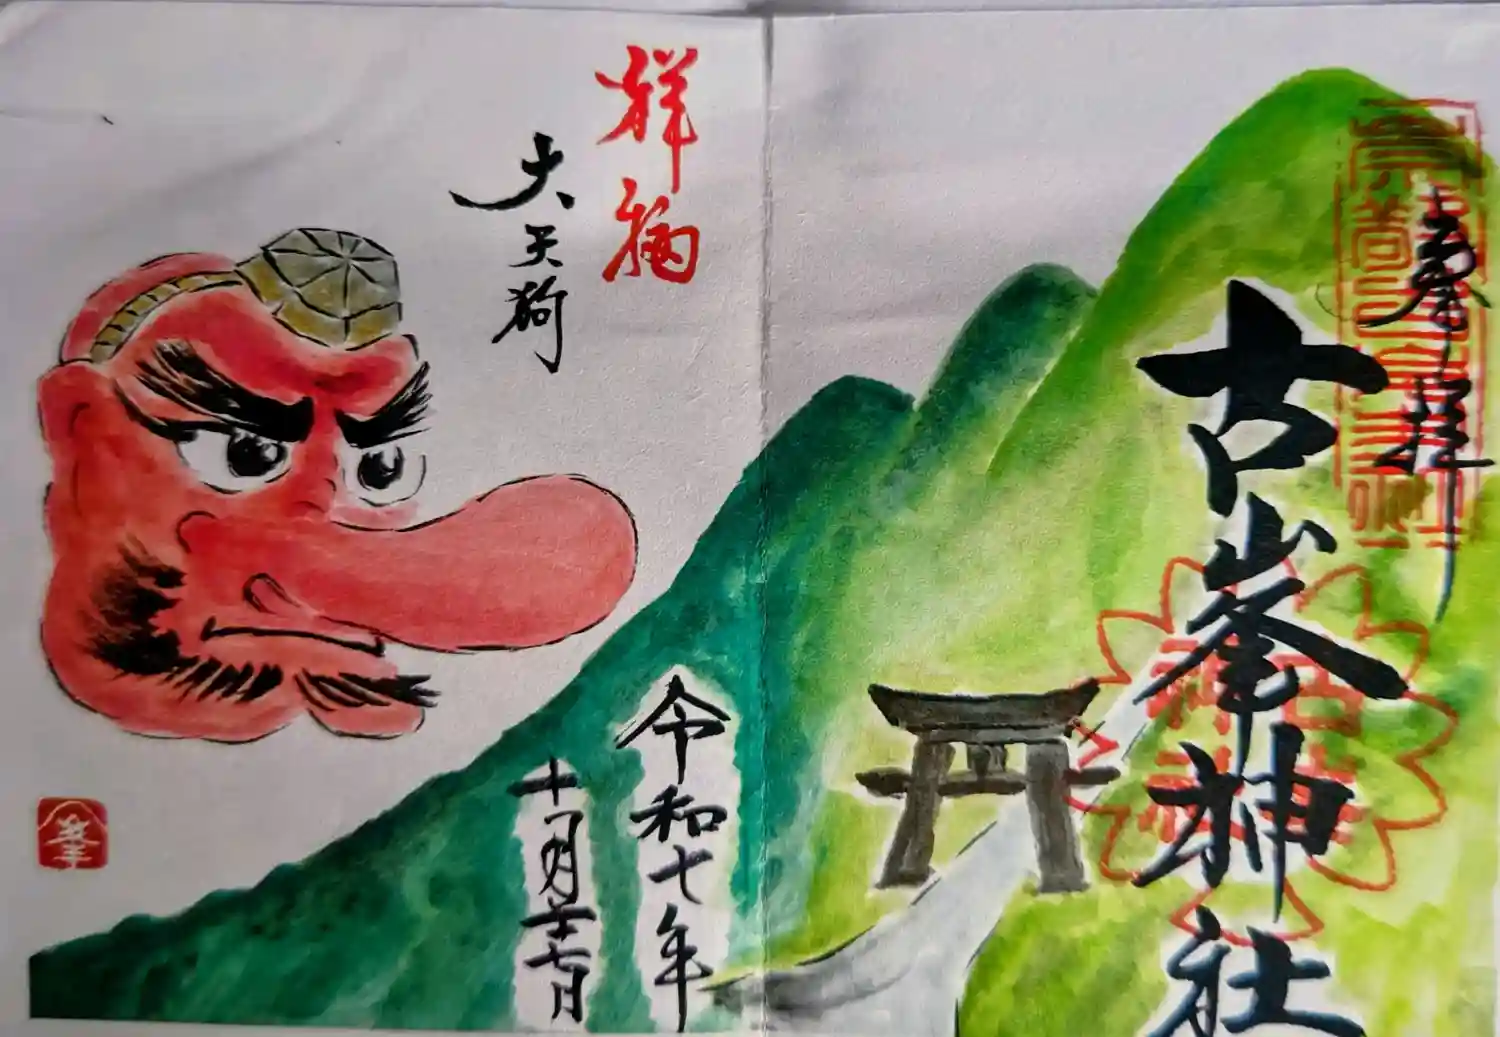 奉拝
古峯神社
令和七年
十一月二十七日
祥
大天狗
峯